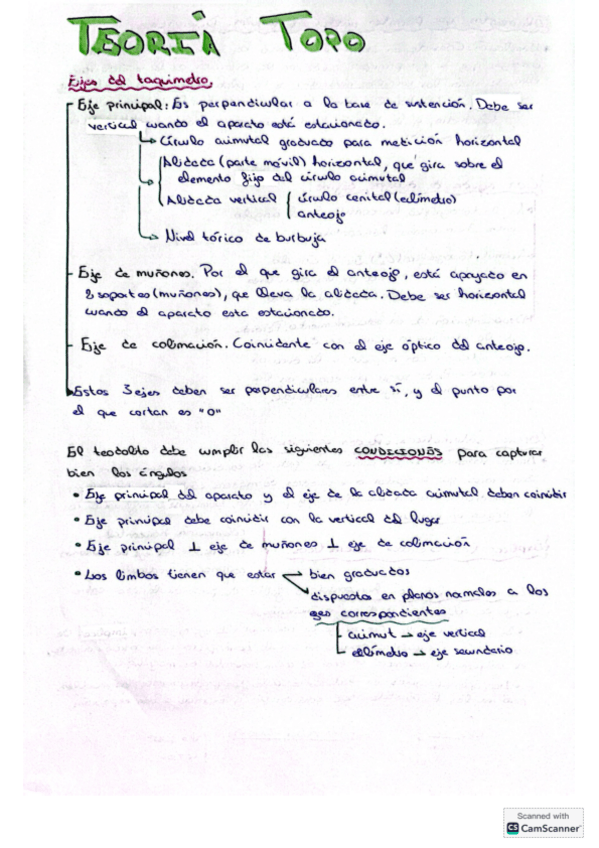 TEORIA TOPO
Ejes del taquimetro.
Eje principal: Es perpendicular a la base de sustención. Debe ser
vertical cuando el aparato está estacionado.
Círculo acimutal graduado para medición horizontal
Alidada (parte móvil) horizontal, que gira sobre el
elemento fijo del círculo acimutal
Alidada vertical círculo cenital (eclímetro)
anteojo
Nivel tórico de burbuja
Eje de muñones. Por el que gira el anteojo, está apoyado en
2 soportes (muñones), que lleva la alidada. Debe ser horizontal
cuando el aparato esta estacionado.
Eje de colimación. Coincidente con el eje óptico del anteojo.
Estos 3 ejes deben ser perpendiculares entre sí, y el punto por
el que cortan es "O"
El teodolito debe cumplir las siguientes CONDICIONES para capturar
bien los ángulos
• Eje principal del aparato y el eje de la alidada acimutal deben coincidir
• Eje principal debe coincidir con la vertical del lugar
• Eje principal ⊥ eje de muñones ⊥ eje de colimación
• Los limbos tienen que estar bien graduados
dispuestos en planos normales a los
ejes correspondientes
acimut → eje vertical
eclímetro → eje secundario
Scanned with
CS CamScanner